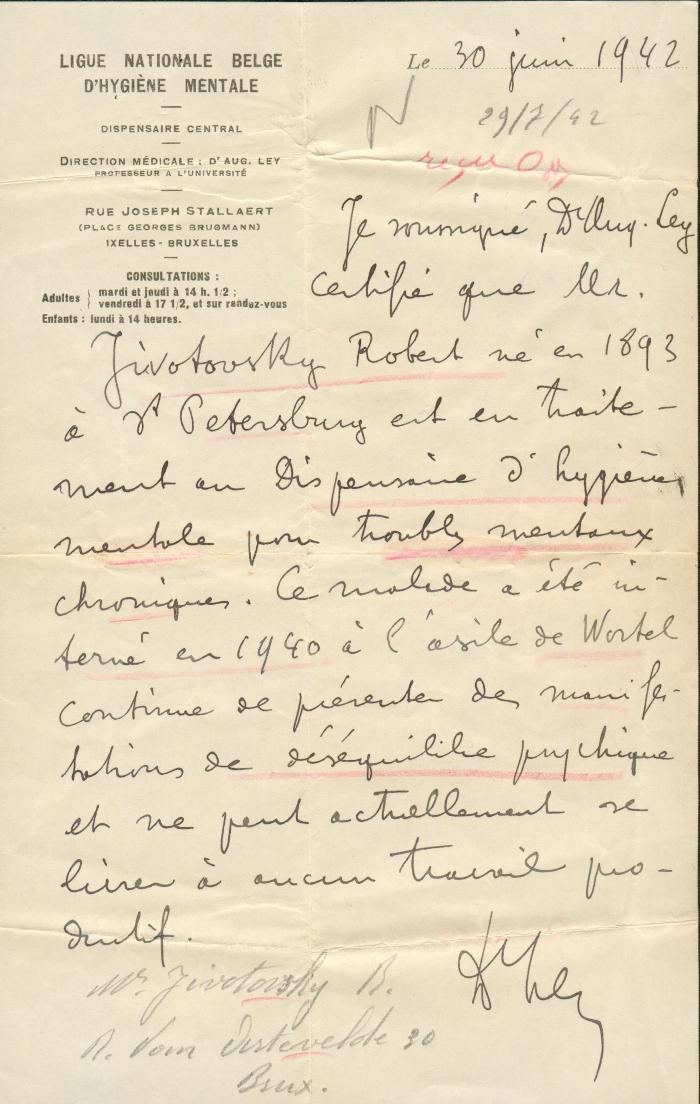 LIGUE NATIONALE BELGE
D'HYGIÈNE MENTALE
DISPENSAIRE CENTRAL
DIRECTION MÉDICALE : Dr AUG. LEY
PROFESSEUR A L'UNIVERSITÉ
RUE JOSEPH STALLAERT
(PLACE GEORGES BRUGMANN)
IXELLES - BRUXELLES
CONSULTATIONS :
Adultes { mardi et jeudi à 14 h. 1/2 ;
vendredi à 17 1/2, et sur rendez-vous
Enfants : lundi à 14 heures.
Le 30 juin 1942
29/7/42
reçu
Je soussigné, Dr Aug. Ley
certifie que Mr.
Jivotovsky Robert né en 1893
à St Petersburg est en traite-
ment au Dispensaire d'hygiène
mentale pour troubles mentaux
chroniques. Ce malade a été in-
terné en 1940 à l'asile de Wortel
continue de présenter des manifes-
tations de déséquilibre psychique
et ne peut actuellement se
livrer à aucun travail pro-
ductif.
Dr Ley
Mr. Jivotovsky R.
R. Vam 30
Brux.